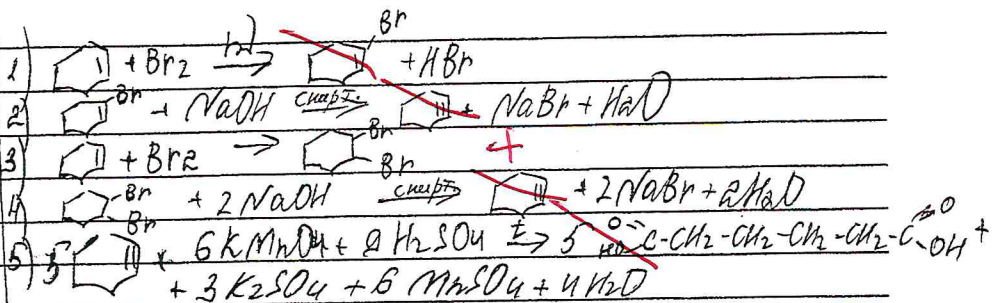 Br
1) + Br2 hν → + HBr
2) Br + NaOH спирт. → + NaBr + H2O
3) + Br2 → Br Br +
4) Br Br + 2 NaOH спирт. → + 2 NaBr + 2H2O
5) 5 + 6 KMnO4 + 9 H2SO4 t→ 5 O=HO-C-CH2-CH2-CH2-CH2-C=O-OH +
+ 3 K2SO4 + 6 MnSO4 + 4 H2O